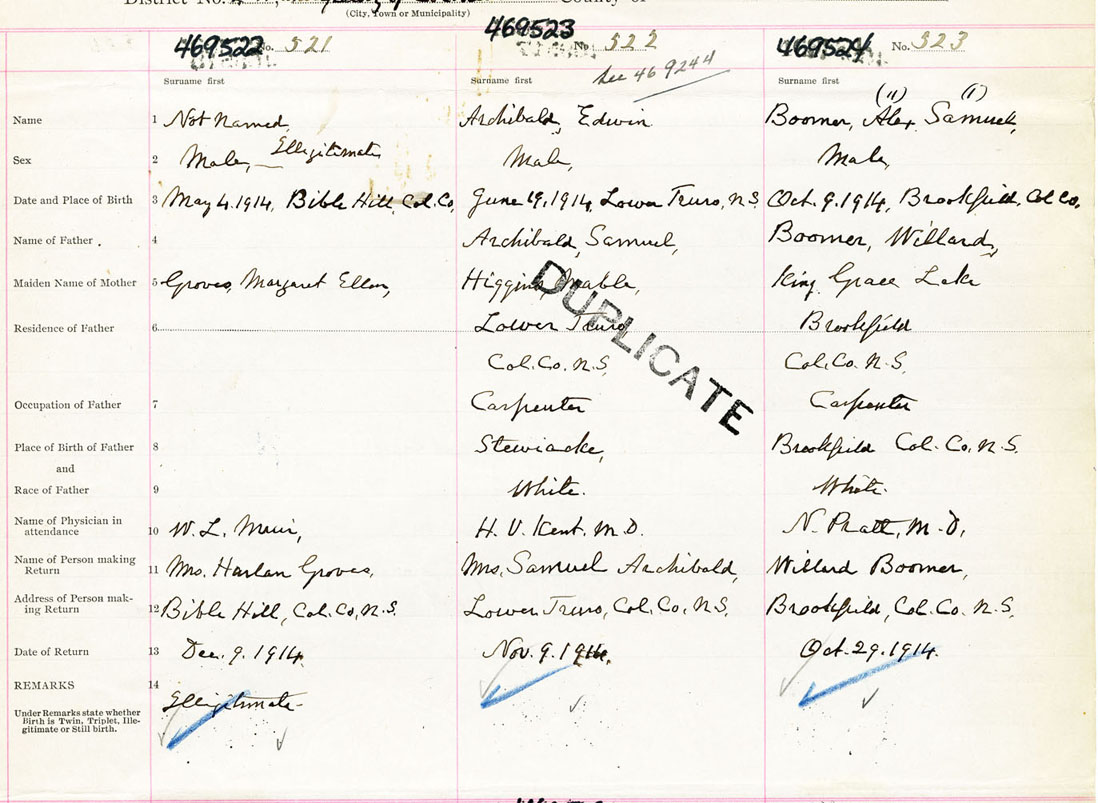 District No. County of
(City, Town or Municipality)
469522 No. 521
469523 No. 522
469524 No. 523
Surname first
Surname first
See 469244
Surname first
Name 1 Not Named, Archibald, Edwin Boomer, Alex Samuel,
(11) (1)
Sex 2 Male, Ellegitimate Male, Male,
Date and Place of Birth 3 May 4.1914, Bible Hill, Col. Co, June 19,1914, Lower Truro, N.S. Oct. 9.1914, Brookfield, Col Co,
Name of Father . 4 Archibald, Samuel, Boomer, Willard,
Maiden Name of Mother 5 Groves, Margaret Ellen, Higgins, Mable, King, Grace
Residence of Father 6 Lower Truro Brookfield
Col. Co. N.S. Col. Co. N.S.
DUPLICATE
Occupation of Father 7 Carpenter Carpenter
Place of Birth of Father 8 Stewiacke, Brookfield Col. Co, N.S.
and
Race of Father 9 White. White.
Name of Physician in
attendance 10 W. L. Muir, H. V. Kent, M.D. N. Pratt, M.D,
Name of Person making
Return 11 Mrs. Harlan Groves, Mrs. Samuel Archibald, Willard Boomer,
Address of Person mak-
ing Return 12 Bible Hill, Col. Co, N.S. Lower Truro, Col. Co, N.S. Brookfield, Col. Co. N.S.
Date of Return 13 Dec. 9. 1914 Nov. 9. 1914, Oct. 29. 1914.
REMARKS 14 Ellegitimate
Under Remarks state whether
Birth is Twin, Triplet, Ille-
gitimate or Still birth.